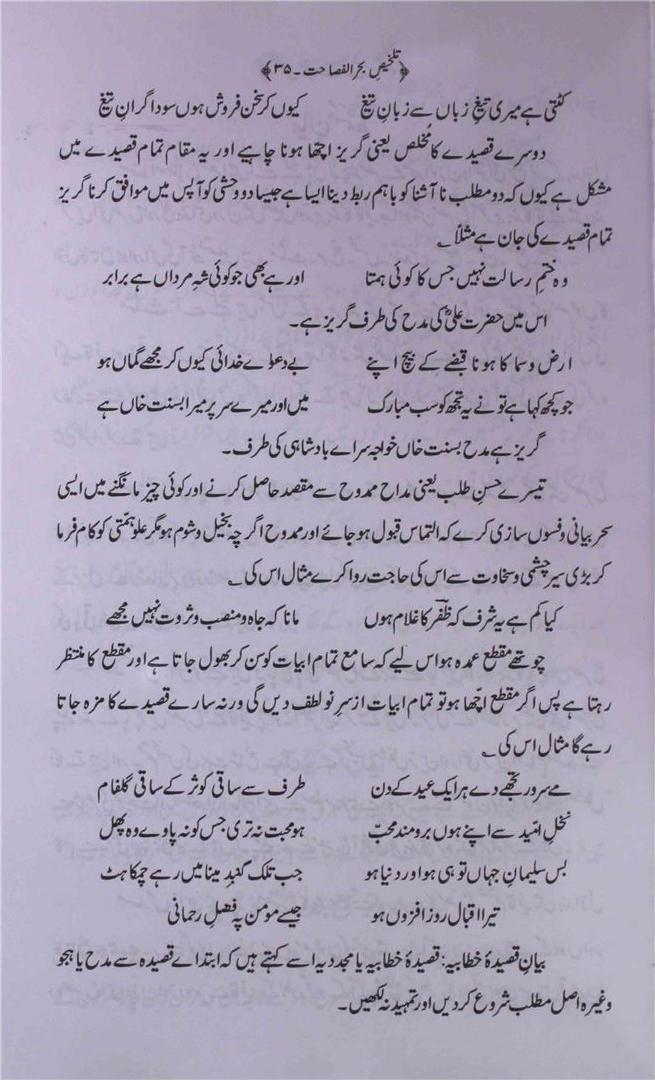 ﴿ تلخیصِ بحر الفصاحت ۔ ۳۵ ﴾
کٹتی ہے میری تیغِ زباں سے زبانِ تیغ کیوں کر سخن فروش ہوں سوداگرانِ تیغ
دوسرے قصیدے کا مخلص یعنی گریز اچھا ہونا چاہیے اور یہ مقام تمام قصیدے میں
مشکل ہے کیوں کہ دو مطلب نا آشنا کو باہم ربط دینا ایسا ہے جیسا دو وحشی کو آپس میں موافق کرنا گریز
تمام قصیدے کی جان ہے مثلاً ؎
وہ ختمِ رسالت نہیں جس کا کوئی ہمتا اور ہے بھی جو کوئی شہِ مرداں ہے برابر
اس میں حضرت علیؓ کی مدح کی طرف گریز ہے۔
ارض و سما کا ہونا قبضے کے بیچ اپنے بے دعوٰے خدائی کیوں کر مجھے گماں ہو
جو کچھ کہا ہے تو نے یہ تجھ کو سب مبارک میں اور میرے سر پر میرا بسنت خاں ہے
گریز ہے مدح بسنت خاں خواجہ سراے بادشاہی کی طرف۔
تیسرے حسنِ طلب یعنی مداح ممدوح سے مقصد حاصل کرنے اور کوئی چیز مانگنے میں ایسی
سحر بیانی و فسوں سازی کرے کہ التماس قبول ہو جائے اور ممدوح اگرچہ بخیل و شوم ہو مگر علو ہمتی کو کام فرما
کر بڑی سیر چشمی و سخاوت سے اس کی حاجت روا کرے مثال اس کی ؎
کیا کم ہے یہ شرف کہ ظفرؔ کا غلام ہوں مانا کہ جاہ و منصب و ثروت نہیں مجھے
چوتھے مقطع عمدہ ہو اس لیے کہ سامع تمام ابیات کو سن کر بھول جاتا ہے اور مقطع کا منتظر
رہتا ہے پس اگر مقطع اچھا ہو تو تمام ابیات از سرِ نو لطف دیں گی ورنہ سارے قصیدے کا مزہ جاتا
رہے گا مثال اس کی ؎
مے سرور تجھے دے ہر ایک عید کے دن طرف سے ساقیِ کوثر کے ساقیِ گلفام
نخلِ امّید سے اپنے ہوں برومند محبّ ہو محبت نہ تری جس کو نہ پاوے وہ پھل
بس سلیمانِ جہاں تو ہی ہو اور دنیا ہو جب تلک گنبدِ مینا میں رہے چمکاہٹ
تیرا اقبال روز افزوں ہو جیسے مومن پہ فضلِ رحمانی
بیانِ قصیدۂ خطابیہ: قصیدۂ خطابیہ یا مجددیہ اسے کہتے ہیں کہ ابتداے قصیدہ سے مدح یا ہجو
وغیرہ اصل مطلب شروع کر دیں اور تمہید نہ لکھیں۔